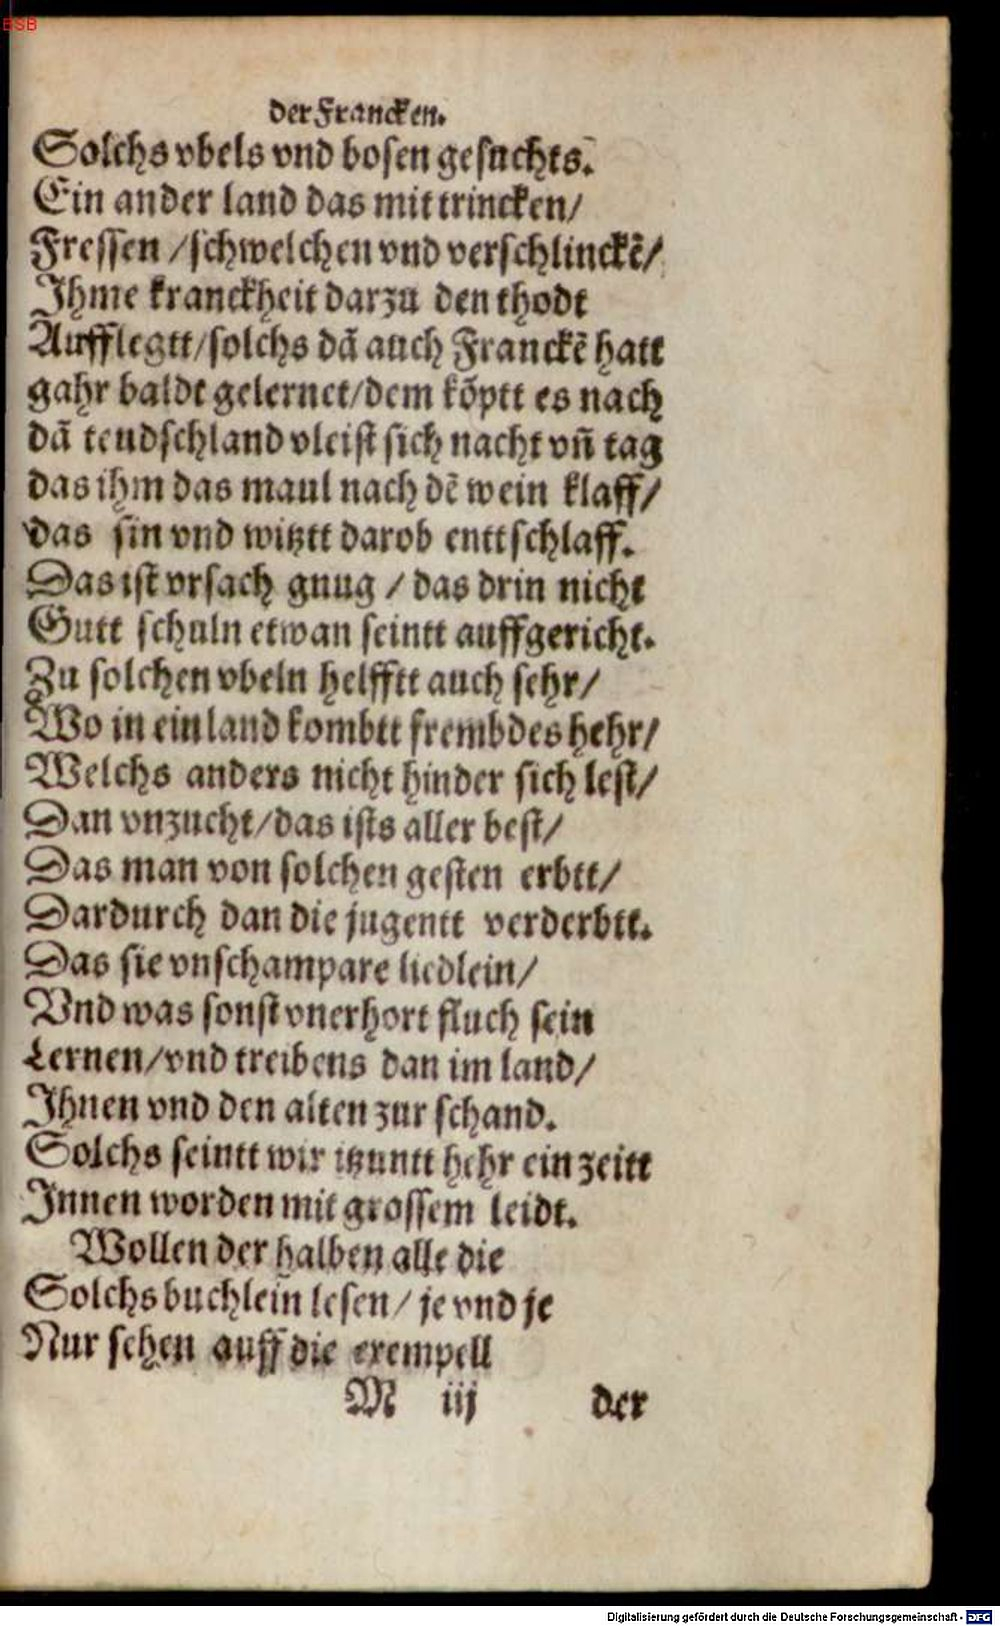 BSB
der Francken.
Solchs vbels vnd bosen gesuchts.
Ein ander land das mit trincken/
Fressen /schwelchen vnd verschlinckẽ/
Ihme kranckheit darzu den thodt
Aufflegtt/solchs dã auch Franckẽ hatt
gahr baldt gelernet/dem kõptt es nach
dã teudschland vleist sich nacht vñ tag
das ihm das maul nach dẽ wein klaff/
das sin vnd witztt darob enttschlaff.
Das ist vrsach gnug / das drin nicht
Gutt schuln etwan seintt auffgericht.
Zu solchen vbeln helfftt auch sehr/
Wo in ein land kombtt frembdes hehr/
Welchs anders nicht hinder sich lest/
Dan vnzucht/das ists aller best/
Das man von solchen gesten erbtt/
Dardurch dan die jugentt verderbtt.
Das sie vnschampare liedlein/
Vnd was sonst vnerhort fluch sein
Lernen/vnd treibens dan im land/
Ihnen vnd den alten zur schand.
Solchs seintt wir itzuntt hehr ein zeitt
Innen worden mit grossem leidt.
Wollen der halben alle die
Solchs buchlein lesen/ je vnd je
Nur sehen auff die exempell
M iij der
Digitalisierung gefördert durch die Deutsche Forschungsgemeinschaft - DFG